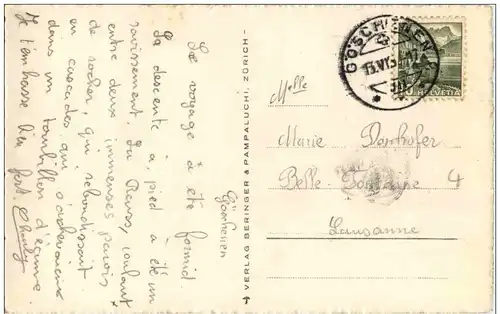 Göschenen
Le voyage a été formid.
La descente à pied a été un
ravissement. La Reuss, coulant
entre deux immenses parois
de rocher, qui rebondissait
en cascades qui s'achevaient
dans un tourbillon d'écume.
Je t'embrasse bien fort.
VERLAG BERINGER & PAMPALUCHI, ZÜRICH
GÖSCHENEN
HELVETIA
Melle
Marie
Belle-Fontaine 4
Lausanne